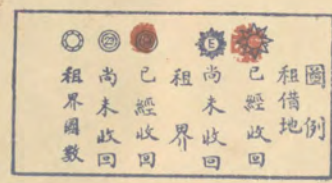 圖例
租借地
已經收回
尚未收回
租界
已經收回
尚未收回
租界國數